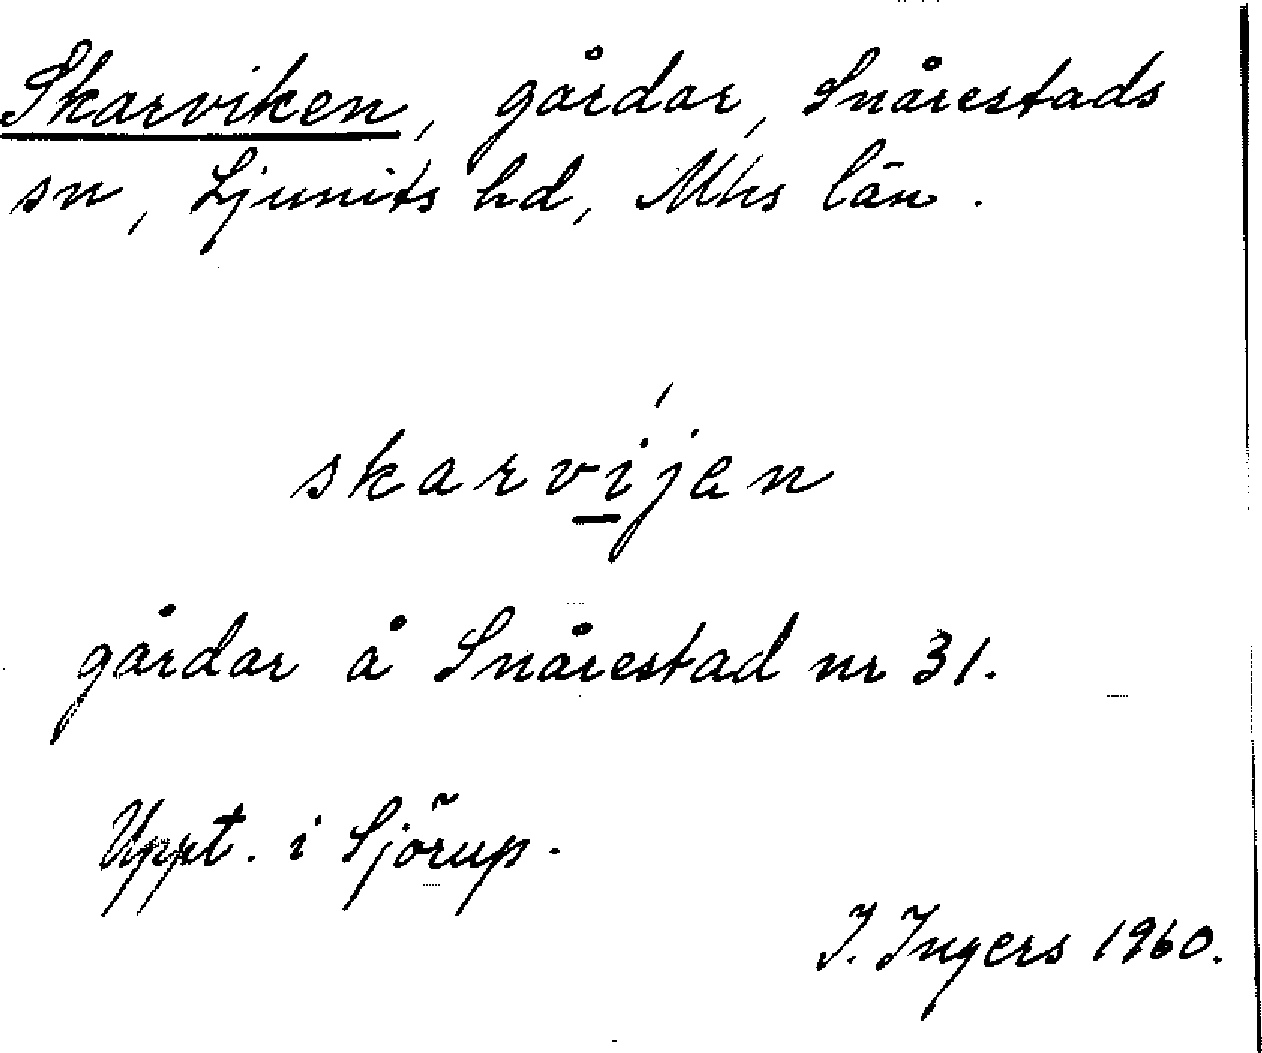 Skarviken, gårdar, Snårestads
sn, Ljunits hd, Mhs län.
skarvíjen
gårdar å Snårestad nr 31.
Uppt. i Sjörup.
I. Ingers 1960.